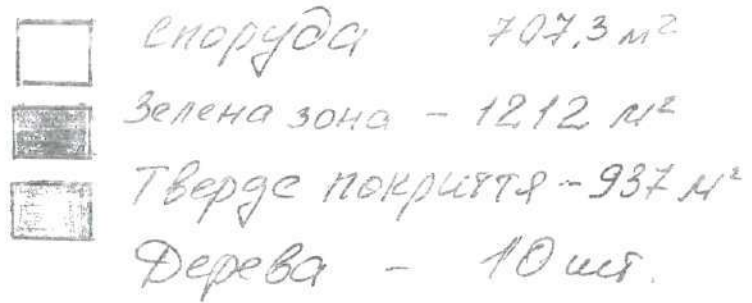 споруда 707,3 м²
Зелена зона - 1212 м²
Тверде покриття - 937 м²
Дерева - 10 шт.